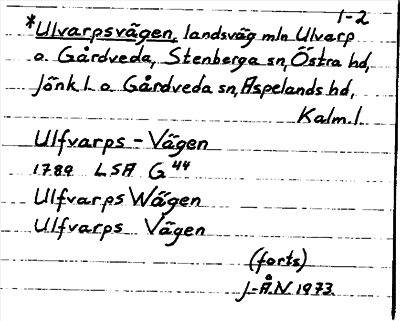 1-2
*Ulvarpsvägen, landsväg mln Ulvarp
o. Gårdveda, Stenberga sn, Östra hd,
Jönk.l. o Gårdveda sn, Aspelands hd,
Kalm.l
Ulfvarps - Vägen
1789 LSA G 44
Ulfvarps Wägen
Ulfvarps Vägen
(forts)
J-Å.N 1973